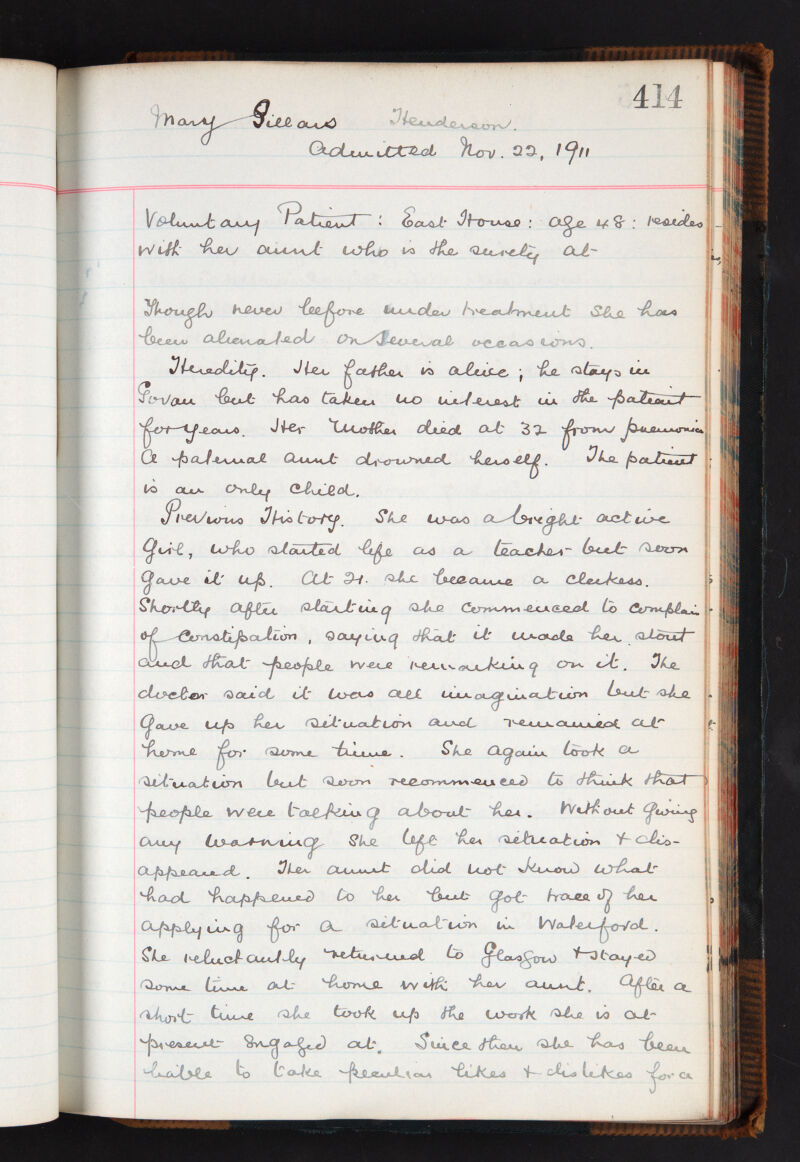 414
Mary Gillars Henderson.
Admitted Nov. 22, 1911
Voluntary Patient: East House: age 48: resides
with her aunt who is the surety at
Though never before under treatment she has
been alienated on several occasions.
Heredity. Her father is alive; he stays in
Govan but has taken no interest in the patient
for years. Her Mother died at 32 from pneumonia
A paternal aunt drowned herself. The patient
is an only child.
Previous History. She was a bright active
girl, who started life as a teacher but soon
gave it up. At 21. she became a clerkess.
Shortly after starting she commenced to complain
of Constipation, saying that it made her stout
and that people were remarking on it. The
doctor said it was all imagination but she
gave up her situation and remained at
home for some time. She again took a
situation but soon recommenced to think that
people were talking about her. Without giving
any warning she left her situation & dis-
appeared. Her aunt did not know what
had happened to her but got trace of her
applying for a situation in Waterford.
She reluctantly returned to Glasgow & stayed
some time at home with her aunt. After a
short time she took up the work she is at
present engaged at. Since then she has been
liable to take peculiar likes & dislikes for a